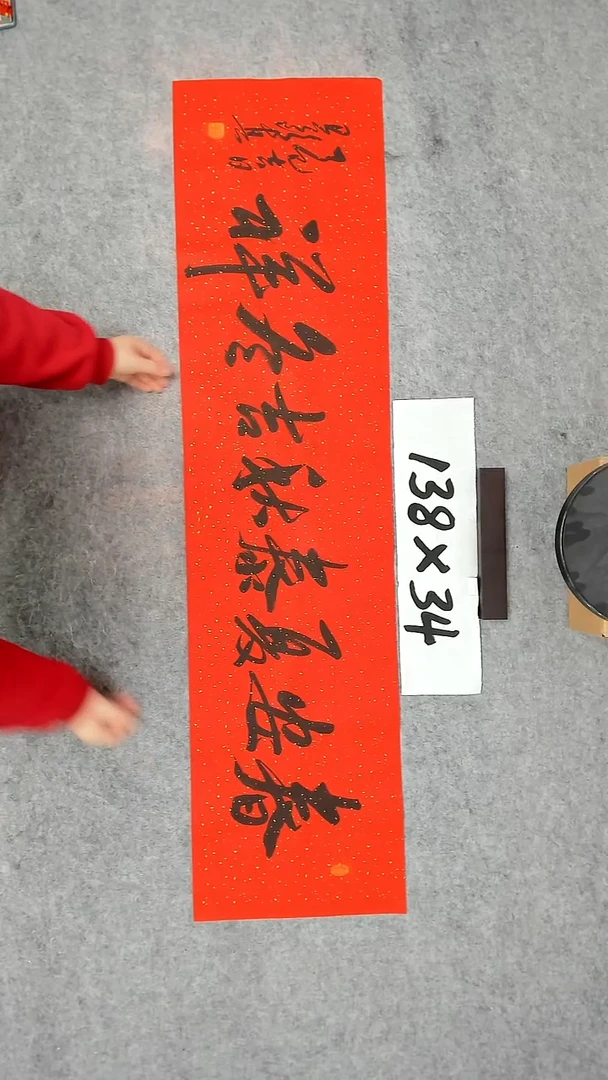 138×34
春安夏泰秋吉冬祥